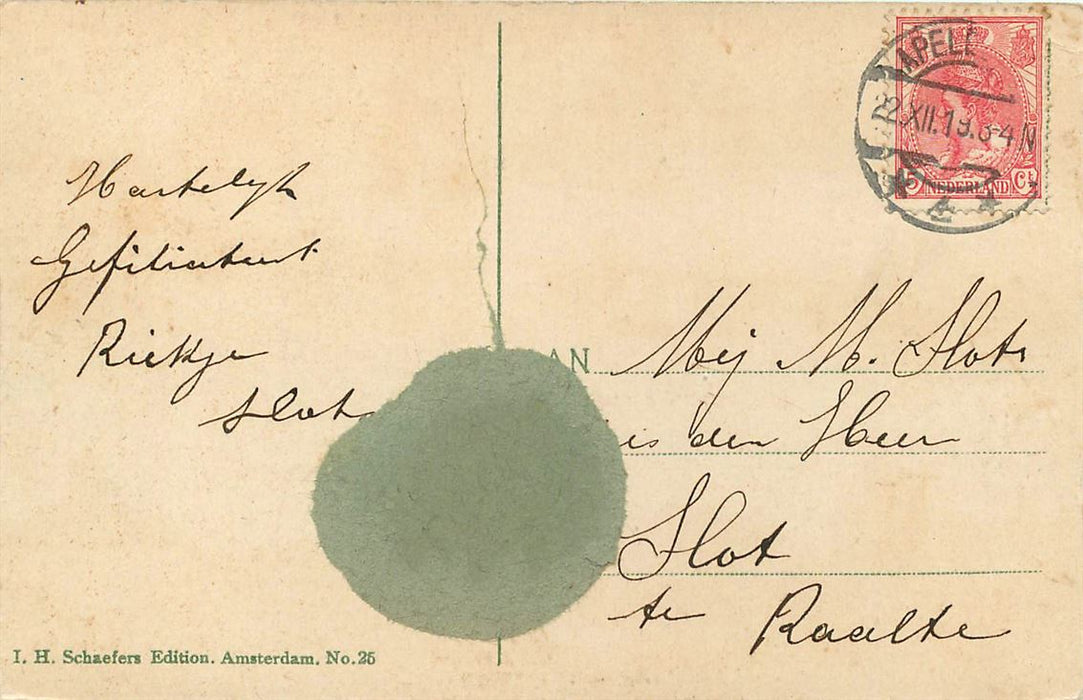 Hartelyk
Gefiliciteert
Riekje
Slot
APELL
22.XII.19.3-4N
5 NEDERLAND Ct
AN Mej M. Slot
den Heer
Slot
te Raalte
I. H. Schaefers Edition. Amsterdam. No.25